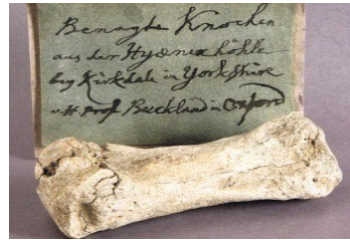 Benagte Knochen
aus der Hyänenhöhle
bey Kirkdale in Yorkshire
v. H Prof Buckland in Oxford